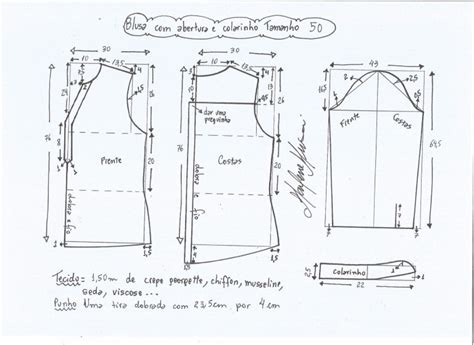 Blusa com abertura e colarinho Tamanho 50
30
10
13,5
4
3
24
26
2,5
8
76
Frente
20
dobra e fio
1
1,5
30
10
13,5
4
26
dar uma
preguinha
76
Costas
20
dobra e fio
1
1,5
49
16,5
2
1,5
Frente
Costas
64,5
7
7
22
2,5
colarinho
1
Tecido = 1,50m de crepe georgette, chiffon, musseline,
seda, viscose...
Punho Uma tira dobrada com 23,5cm por 4 cm